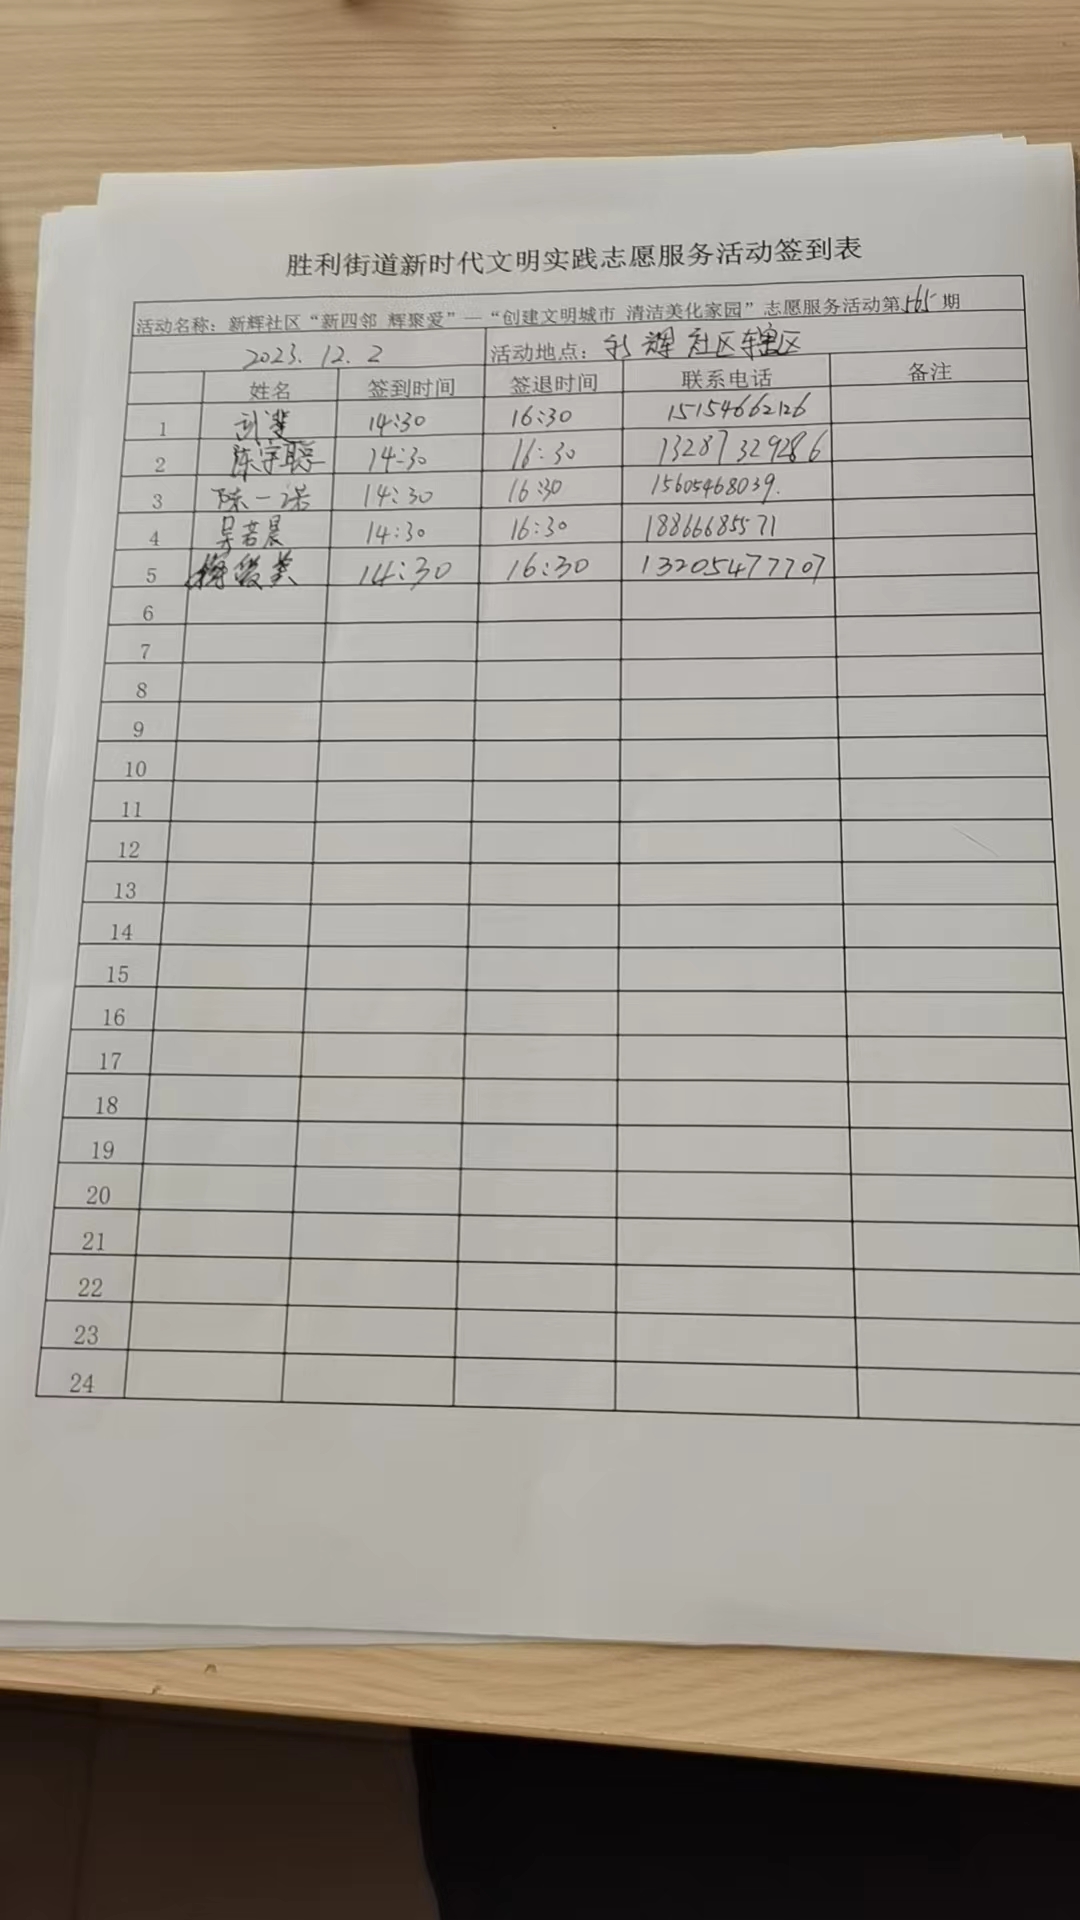 胜利街道新时代文明实践志愿服务活动签到表
活动名称：新辉社区“新四邻 辉聚爱”—“创建文明城市 清洁美化家园”志愿服务活动第565期
2023.12.2 活动地点：新辉社区辖区
姓名 签到时间 签退时间 联系电话 备注
1 刘斐 14:30 16:30 15154662126
2 陈宇聪 14:30 16:30 13287329286
3 陈一诺 14:30 16:30 15605468039.
4 吴若晨 14:30 16:30 18866685571
5 14:30 16:30 13205477707
6
7
8
9
10
11
12
13
14
15
16
17
18
19
20
21
22
23
24